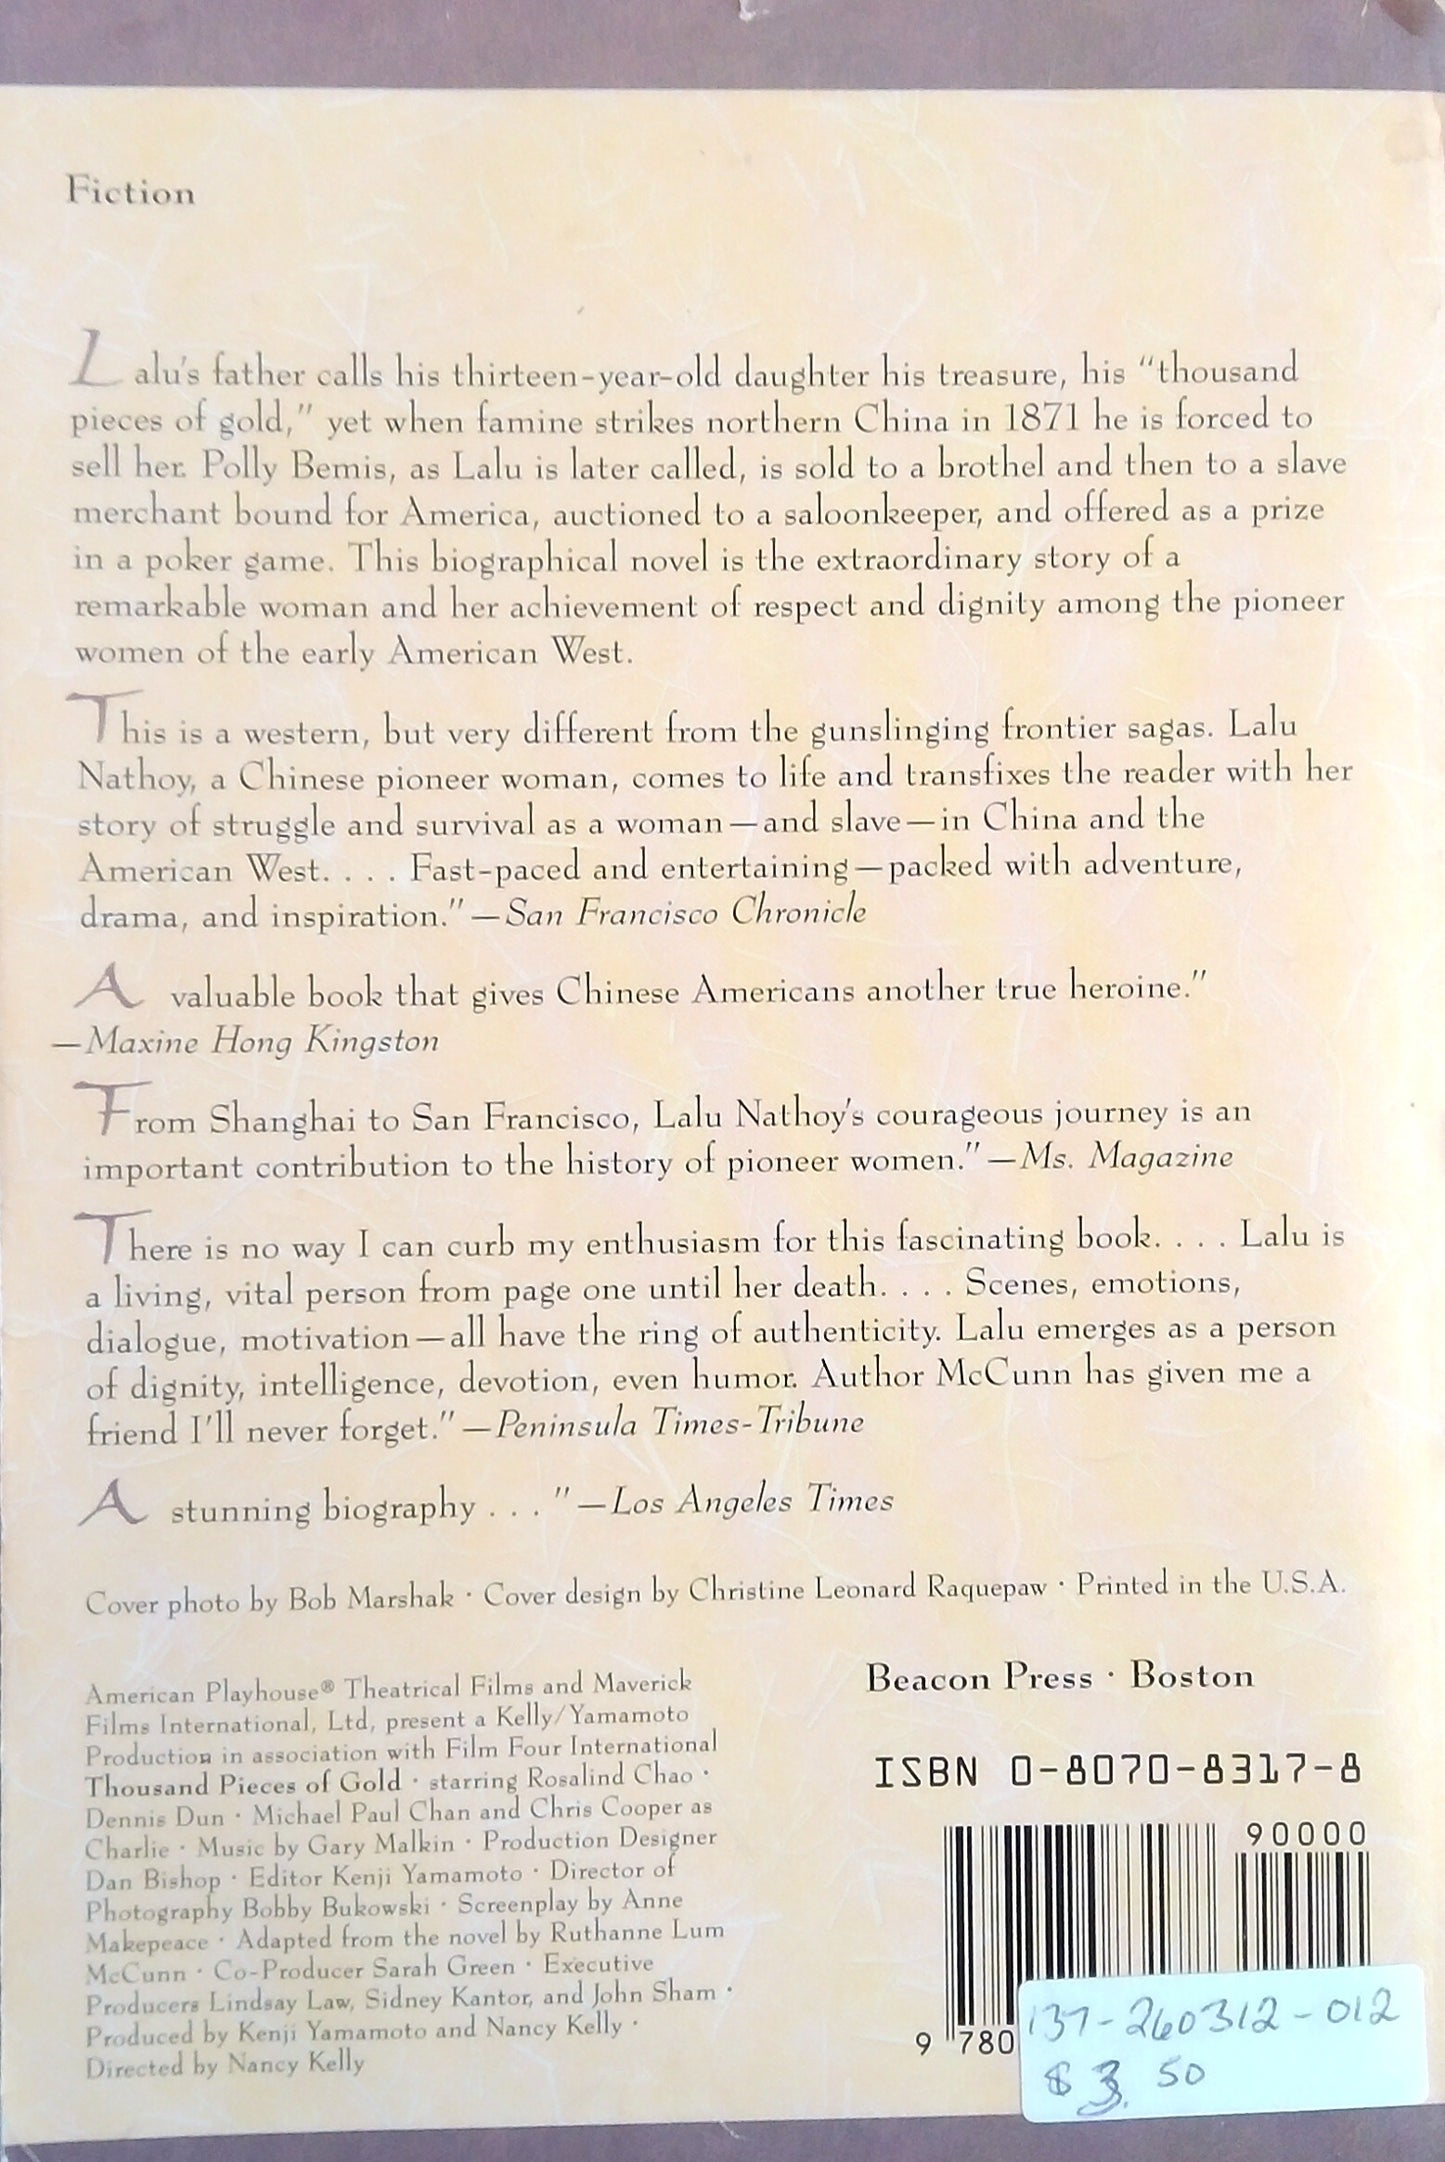 Fiction
Lalu's father calls his thirteen-year-old daughter his treasure, his "thousand
pieces of gold," yet when famine strikes northern China in 1871 he is forced to
sell her. Polly Bemis, as Lalu is later called, is sold to a brothel and then to a slave
merchant bound for America, auctioned to a saloonkeeper, and offered as a prize
in a poker game. This biographical novel is the extraordinary story of a
remarkable woman and her achievement of respect and dignity among the pioneer
women of the early American West.
This is a western, but very different from the gunslinging frontier sagas. Lalu
Nathoy, a Chinese pioneer woman, comes to life and transfixes the reader with her
story of struggle and survival as a woman—and slave—in China and the
American West. . . . Fast-paced and entertaining—packed with adventure,
drama, and inspiration." —San Francisco Chronicle
A valuable book that gives Chinese Americans another true heroine."
—Maxine Hong Kingston
From Shanghai to San Francisco, Lalu Nathoy's courageous journey is an
important contribution to the history of pioneer women." —Ms. Magazine
There is no way I can curb my enthusiasm for this fascinating book. . . . Lalu is
a living, vital person from page one until her death. . . . Scenes, emotions,
dialogue, motivation—all have the ring of authenticity. Lalu emerges as a person
of dignity, intelligence, devotion, even humor. Author McCunn has given me a
friend I'll never forget." —Peninsula Times-Tribune
A stunning biography . . . " —Los Angeles Times
Cover photo by Bob Marshak · Cover design by Christine Leonard Raquepaw · Printed in the U.S.A.
American Playhouse® Theatrical Films and Maverick
Films International, Ltd, present a Kelly/Yamamoto
Production in association with Film Four International
Thousand Pieces of Gold · starring Rosalind Chao ·
Dennis Dun · Michael Paul Chan and Chris Cooper as
Charlie · Music by Gary Malkin · Production Designer
Dan Bishop · Editor Kenji Yamamoto · Director of
Photography Bobby Bukowski · Screenplay by Anne
Makepeace · Adapted from the novel by Ruthanne Lum
McCunn · Co-Producer Sarah Green · Executive
Producers Lindsay Law, Sidney Kantor, and John Sham ·
Produced by Kenji Yamamoto and Nancy Kelly ·
Directed by Nancy Kelly
Beacon Press · Boston
ISBN 0-8070-8317-8
90000
9 780
137-260312-012
$ 3.50